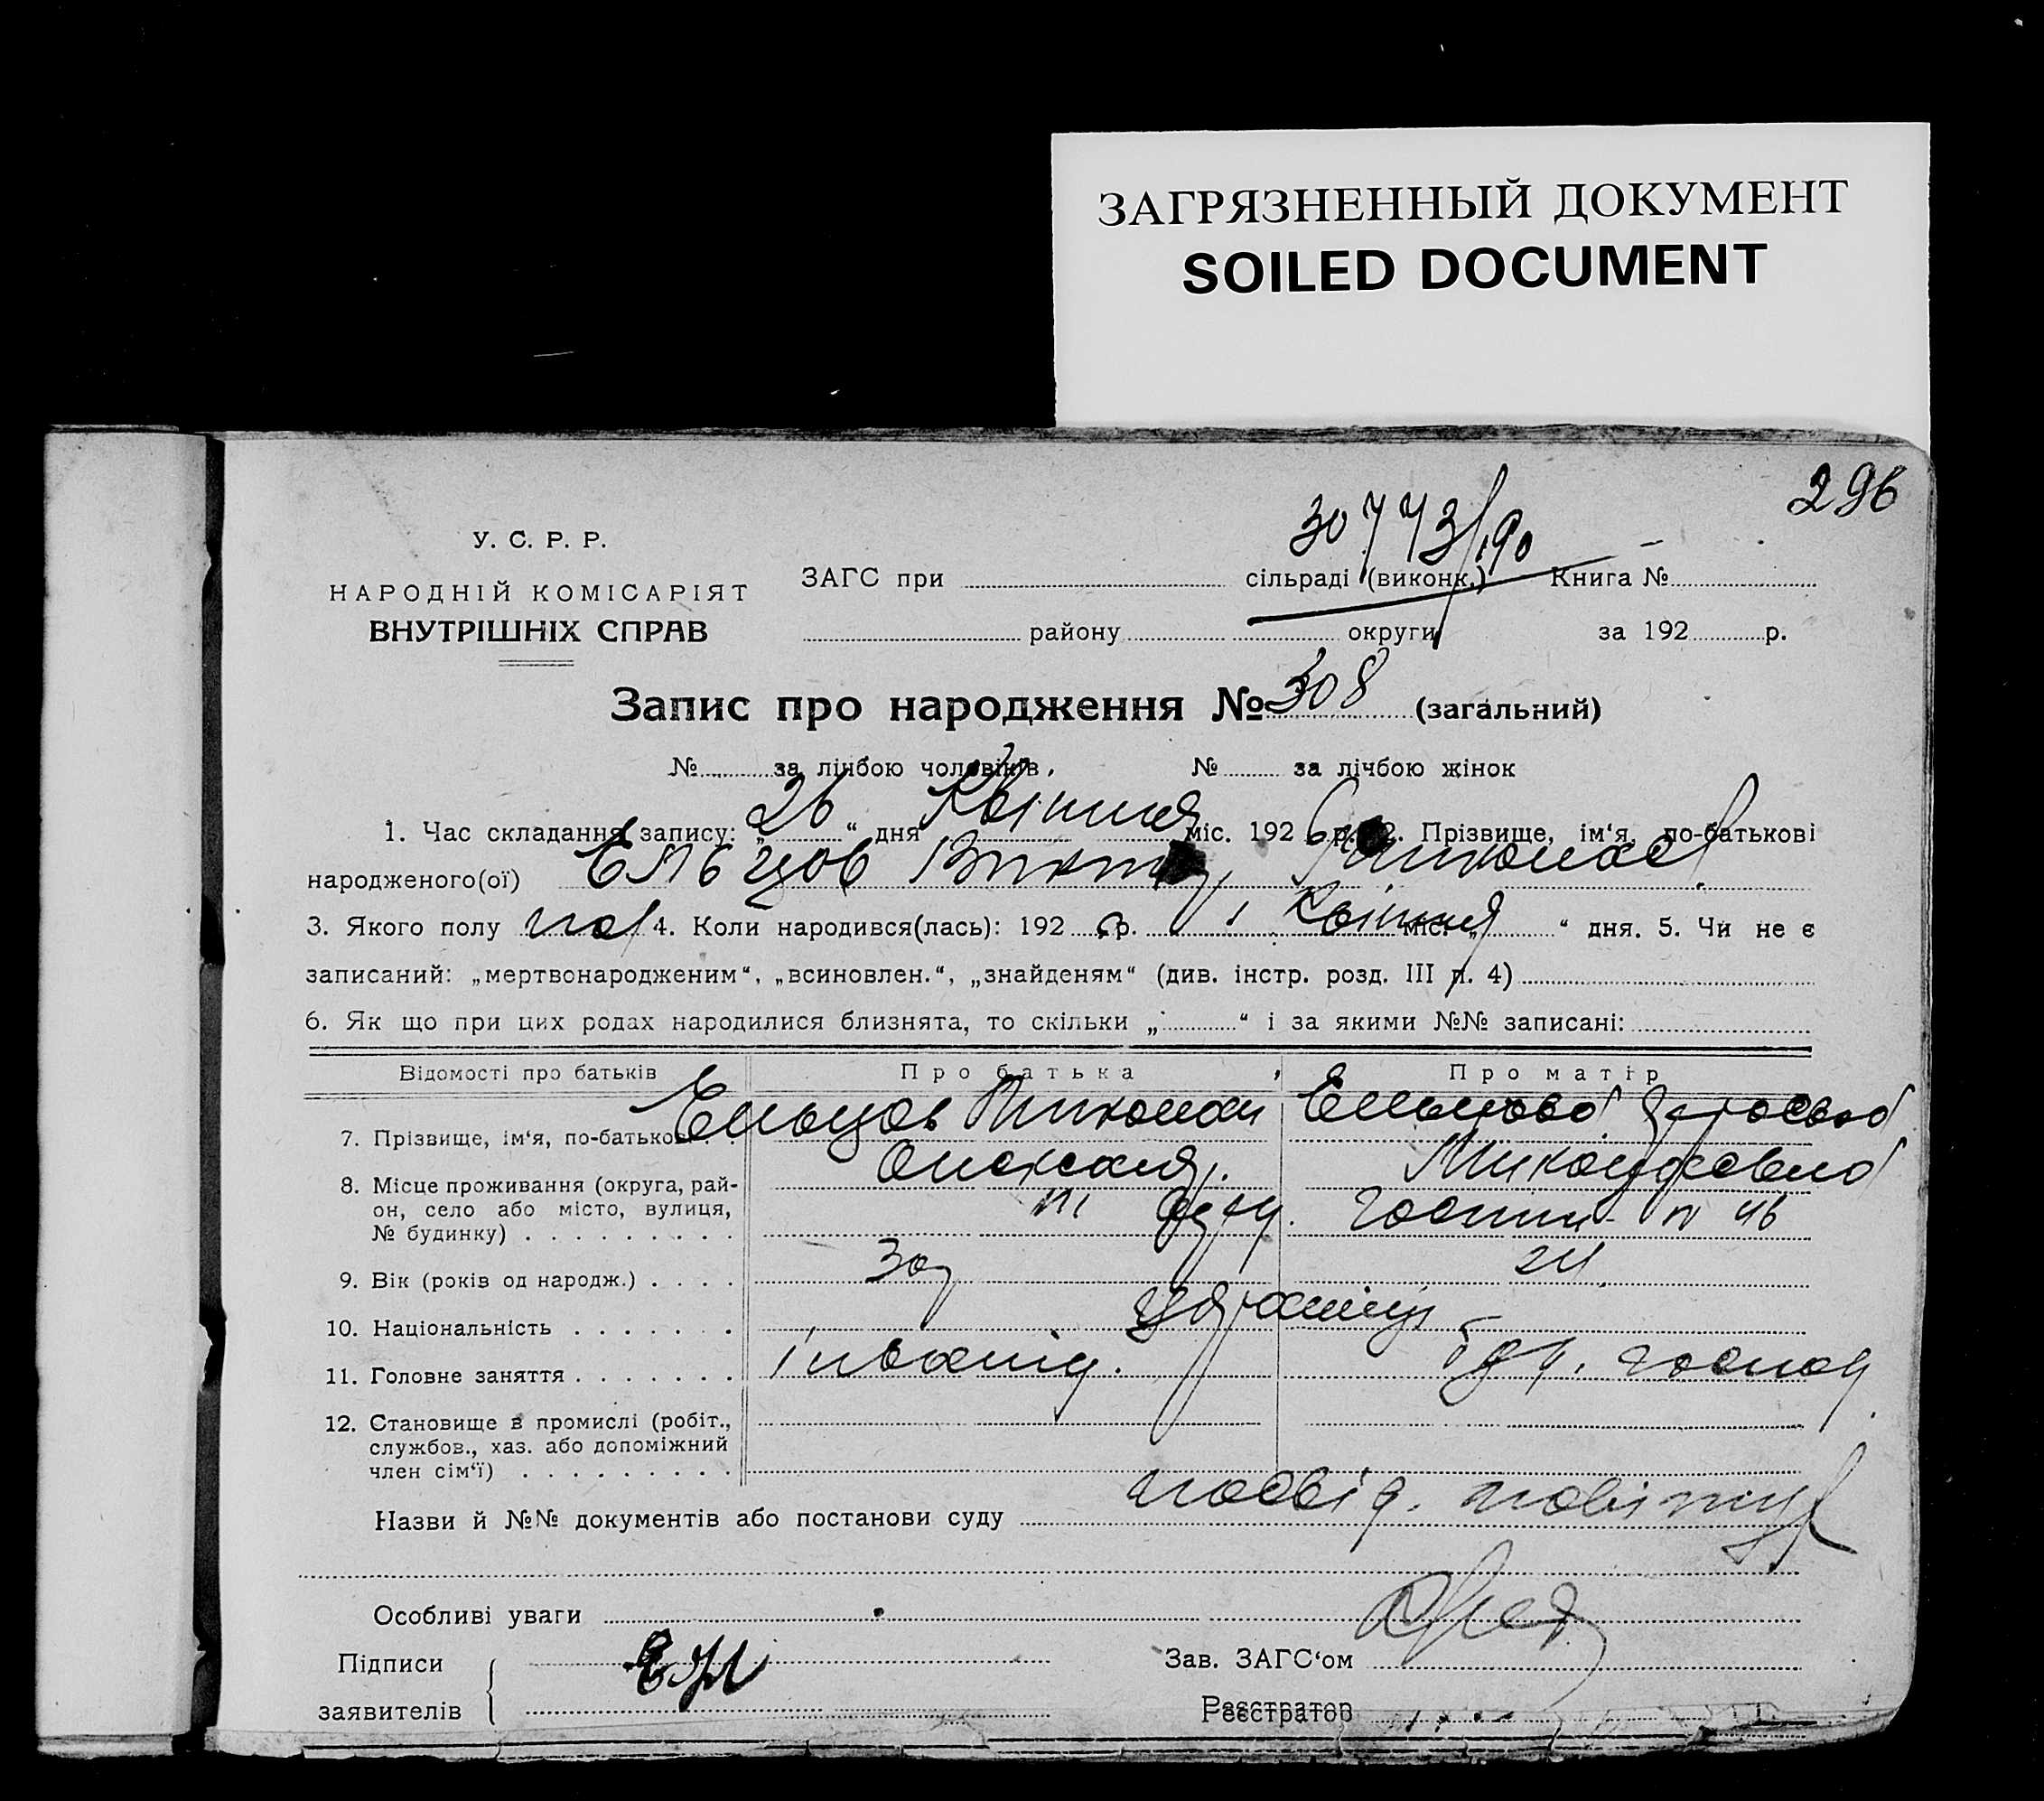 ЗАГРЯЗНЕННЫЙ ДОКУМЕНТ
SOILED DOCUMENT
296
30773/190
У. С. Р. Р.
НАРОДНІЙ КОМІСАРІЯТ
ВНУТРІШНІХ СПРАВ
ЗАГС при сільраді (виконк.) Книга №
району округи за 192 р.
Запис про народження № 308 (загальний)
№ за лічбою чоловіків, № за лічбою жінок
1. Час складання запису: „26“ дня Квітня міс. 1926 р. 2. Прізвище, ім‘я, по-батькові
народженого(ої) Ельцов Виктор
3. Якого полу 4. Коли народився(лась): 1926 р. 1 Квітня міс. „ “ дня. 5. Чи не є
записаний: „мертвонародженим“, „всиновлен.“, „знайденям“ (див. інстр. розд. III п. 4)
6. Як що при цих родах народилися близнята, то скільки „ “ і за якими №№ записані:
Відомості про батьків Про батька Про матір
7. Прізвище, ім‘я, по-батькові Ельцов Николай Ельцова
Миколаевна
8. Місце проживання (округа, рай-
он, село або місто, вулиця,
№ будинку) N 46
9. Вік (років од народж.) 30 24
10. Національність українці
11. Головне заняття інвалід. господ.
12. Становище в промислі (робіт.,
службов., хаз. або допоміжний
член сім‘ї)
Назви й №№ документів або постанови суду посвід.
Особливі уваги
Підписи
заявителів
Зав. ЗАГС‘ом
Реєстратор